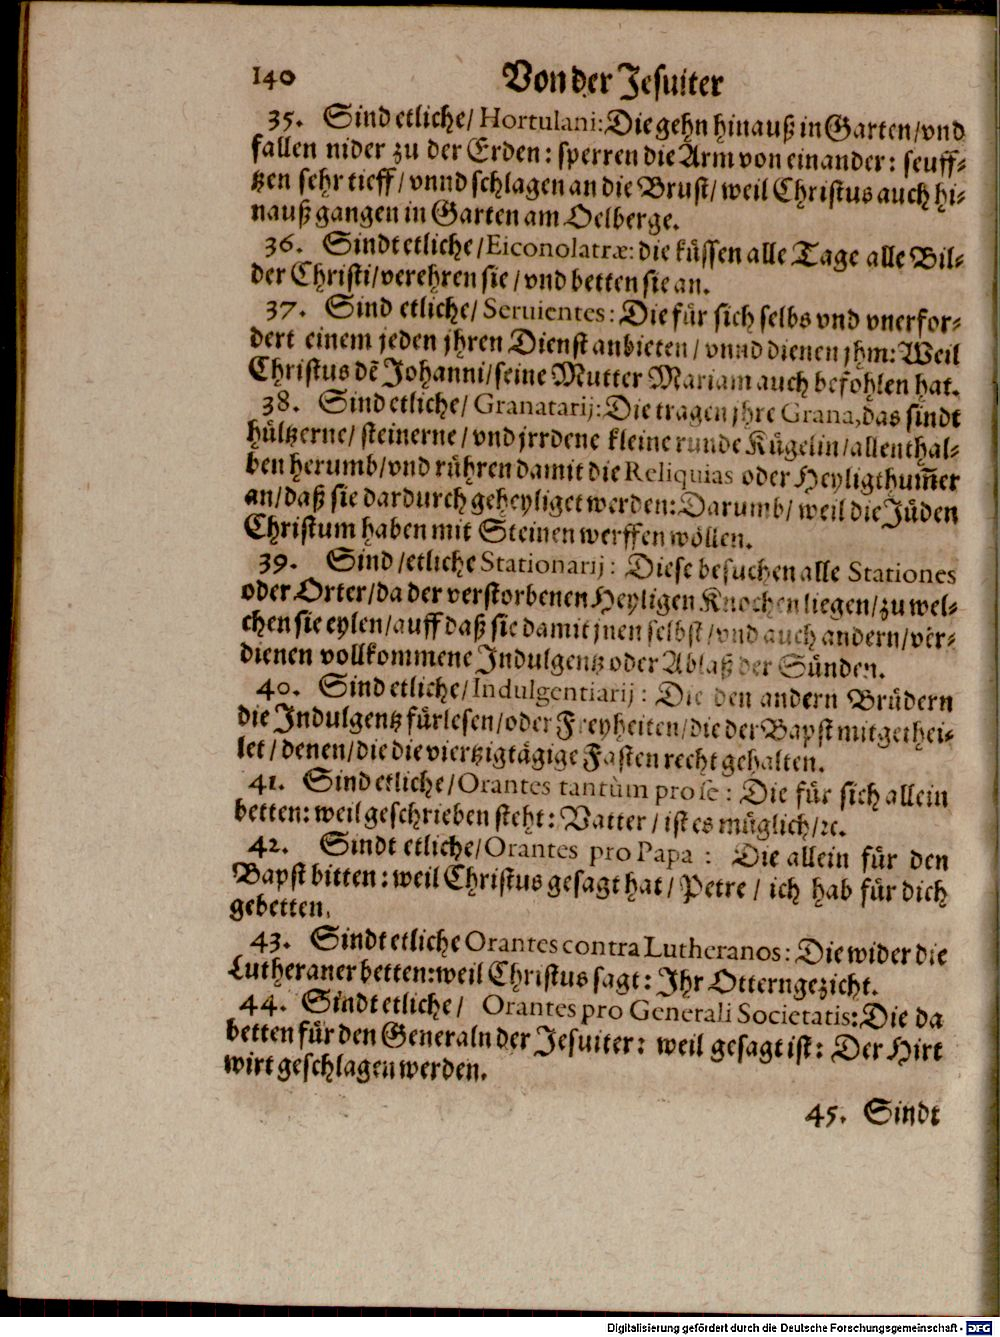 140 Von der Jesuiter
35. Sind etliche/ Hortulani: Die gehn hinauß in Garten/ vnd
fallen nider zu der Erden: sperren die Arm von einander: seuff-
tzen sehr tieff/ vnnd schlagen an die Brust/ weil Christus auch hi-
nauß gangen in Garten am Oelberge.
36. Sindt etliche/ Eiconolatræ: die küssen alle Tage alle Bil-
der Christi/ verehren sie/ vnd betten sie an.
37. Sind etliche/ Seruientes: Die für sich selbs vnd vnerfor-
dert einem jeden jhren Dienst anbieten/ vnnd dienen jhm: Weil
Christus dẽ Johanni/ seine Mutter Mariam auch befohlen hat.
38. Sind etliche/ Granatarij: Die tragen jhre Grana, das sindt
hültzerne/ steinerne/ vnd jrrdene kleine runde Kügelin/ allenthal-
ben herumb/ vnd rühren damit die Reliquias oder Heyligthum̃er
an/ daß sie dardurch geheyliget werden: Darumb/ weil die Jüden
Christum haben mit Steinen werffen wöllen.
39. Sind/ etliche Stationarij: Diese besuchen alle Stationes
oder Orter/ da der verstorbenen Heyligen Knochen liegen/ zu wel-
chen sie eylen/ auff daß sie damit jnen selbst/ vnd auch andern/ ver-
dienen vollkommene Indulgentz oder Ablaß der Sünden.
40. Sind etliche/ Indulgentiarij: Die den andern Brüdern
die Indulgentz fürlesen/ oder Freyheiten/ die der Bapst mitgethei-
let/ denen/ die die viertzigtägige Fasten recht gehalten.
41. Sind etliche/ Orantes tantùm pro se: Die für sich allein
betten: weil geschrieben steht: Vatter/ ist es müglich/ ꝛc.
42. Sindt etliche/ Orantes pro Papa: Die allein für den
Bapst bitten: weil Christus gesagt hat/ Petre/ ich hab für dich
gebetten.
43. Sindt etliche Orantes contra Lutheranos: Die wider die
Lutheraner betten: weil Christus sagt: Ihr Otterngezicht.
44. Sindt etliche/ Orantes pro Generali Societatis: Die da
betten für den Generaln der Jesuiter: weil gesagt ist: Der Hirt
wirt geschlagen werden.
45. Sindt
Digitalisierung gefördert durch die Deutsche Forschungsgemeinschaft - DFG